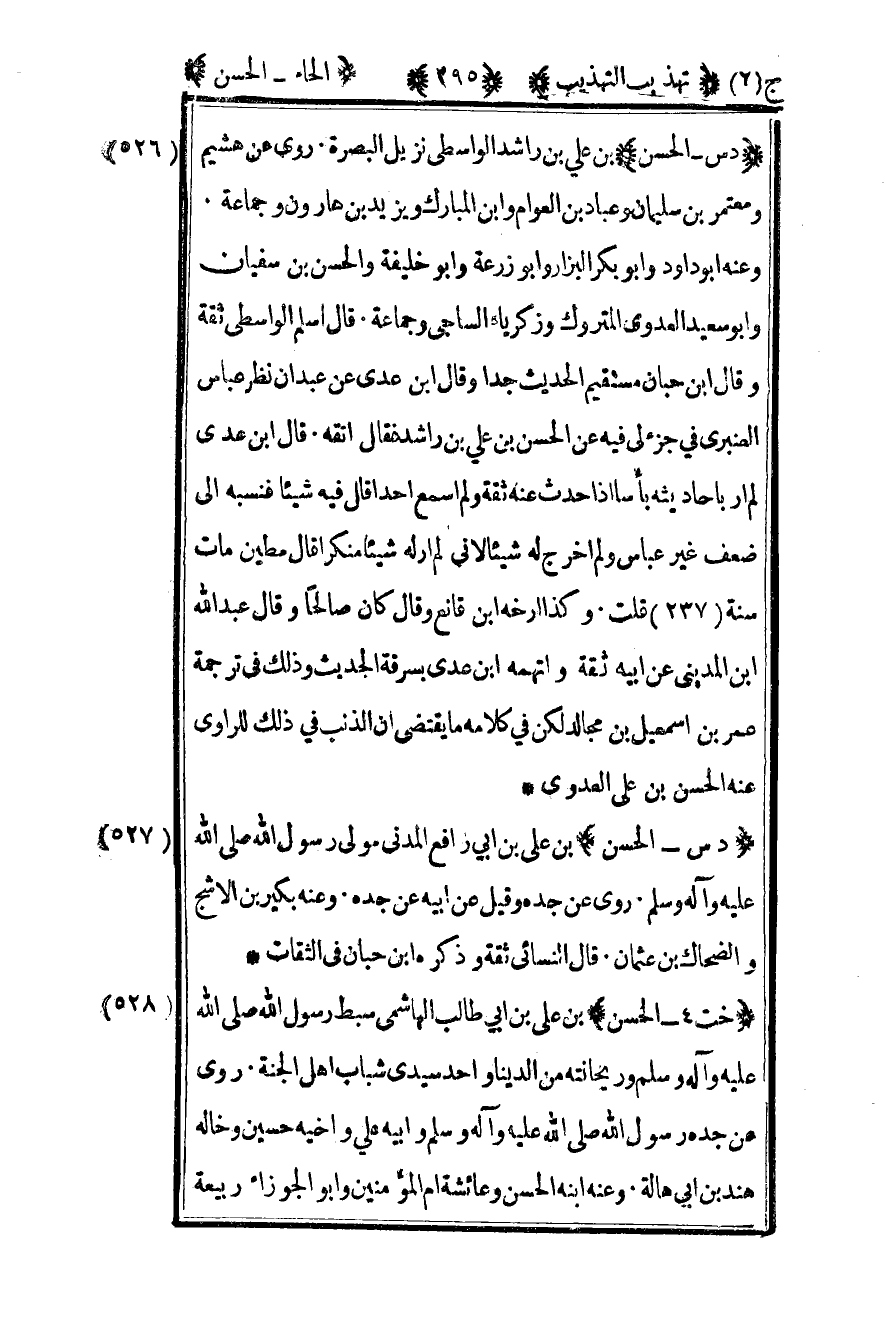 ج (٢) ﴿ تهذيب التهذيب ﴾ ﴿ ٢٩٥ ﴾ ﴿ الحاء ـ الحسن ﴾
﴿ دس ـ الحسن ﴾ بن علي بن راشد الواسطى نزيل البصرة ٠ روى عن هشيم (٥٢٦)
ومعتمر بن سليمان وعباد بن العوام وابن المبارك ويزيد بن هارون وجماعة ٠
وعنه ابوداود وابو بكر البزار وابو زرعة وابو خليفة والحسن بن سفيان
وابو سعيد العدوى المتروك وزكرياء الساجى وجماعة ٠ قال اسلم الواسطى ثقة
وقال ابن حبان مستقيم الحديث جدا وقال ابن عدى عن عبدان نظر عباس
العنبرى في جزء لى فيه عن الحسن بن علي بن راشد فقال اتقه ٠ قال ابن عدى
لم ار باحاديثه بأسا اذا حدث عنه ثقة ولم اسمع احدا قال فيه شيئا فنسبه الى
ضعف غير عباس ولم اخرج له شيئا لاني لم ار له شيئا منكرا قال مطين مات
سنة (٢٣٧) قلت ٠ وكذا ارخه ابن قانع وقال كان صالحًا وقال عبدالله
ابن المديني عن ابيه ثقة واتهمه ابن عدى بسرقة الحديث وذلك فى ترجمة
عمر بن اسمعيل بن مجالد لكن في كلامه ما يقتضى ان الذنب في ذلك للراوى
عنه الحسن بن على العدوى *
﴿ د س ـ الحسن ﴾ بن على بن ابي رافع المدنى مولى رسول الله صلى الله (٥٢٧)
عليه وآله وسلم ٠ روى عن جده وقيل عن ابيه عن جده ٠ وعنه بكير بن الاشج
والضحاك بن عثمان ٠ قال النسائى ثقة وذكره ابن حبان فى الثقات *
﴿ خت ٤ ـ الحسن ﴾ بن على بن ابي طالب الهاشمى سبط رسول الله صلى الله (٥٢٨)
عليه وآله وسلم وريحانته من الدينا واحد سيدى شباب اهل الجنة ٠ روى
عن جده رسول الله صلى الله عليه وآله وسلم وابيه علي واخيه حسين وخاله
هند بن ابي هالة ٠ وعنه ابنه الحسن وعائشة ام المؤمنين وابو الجوزاء ربيعة